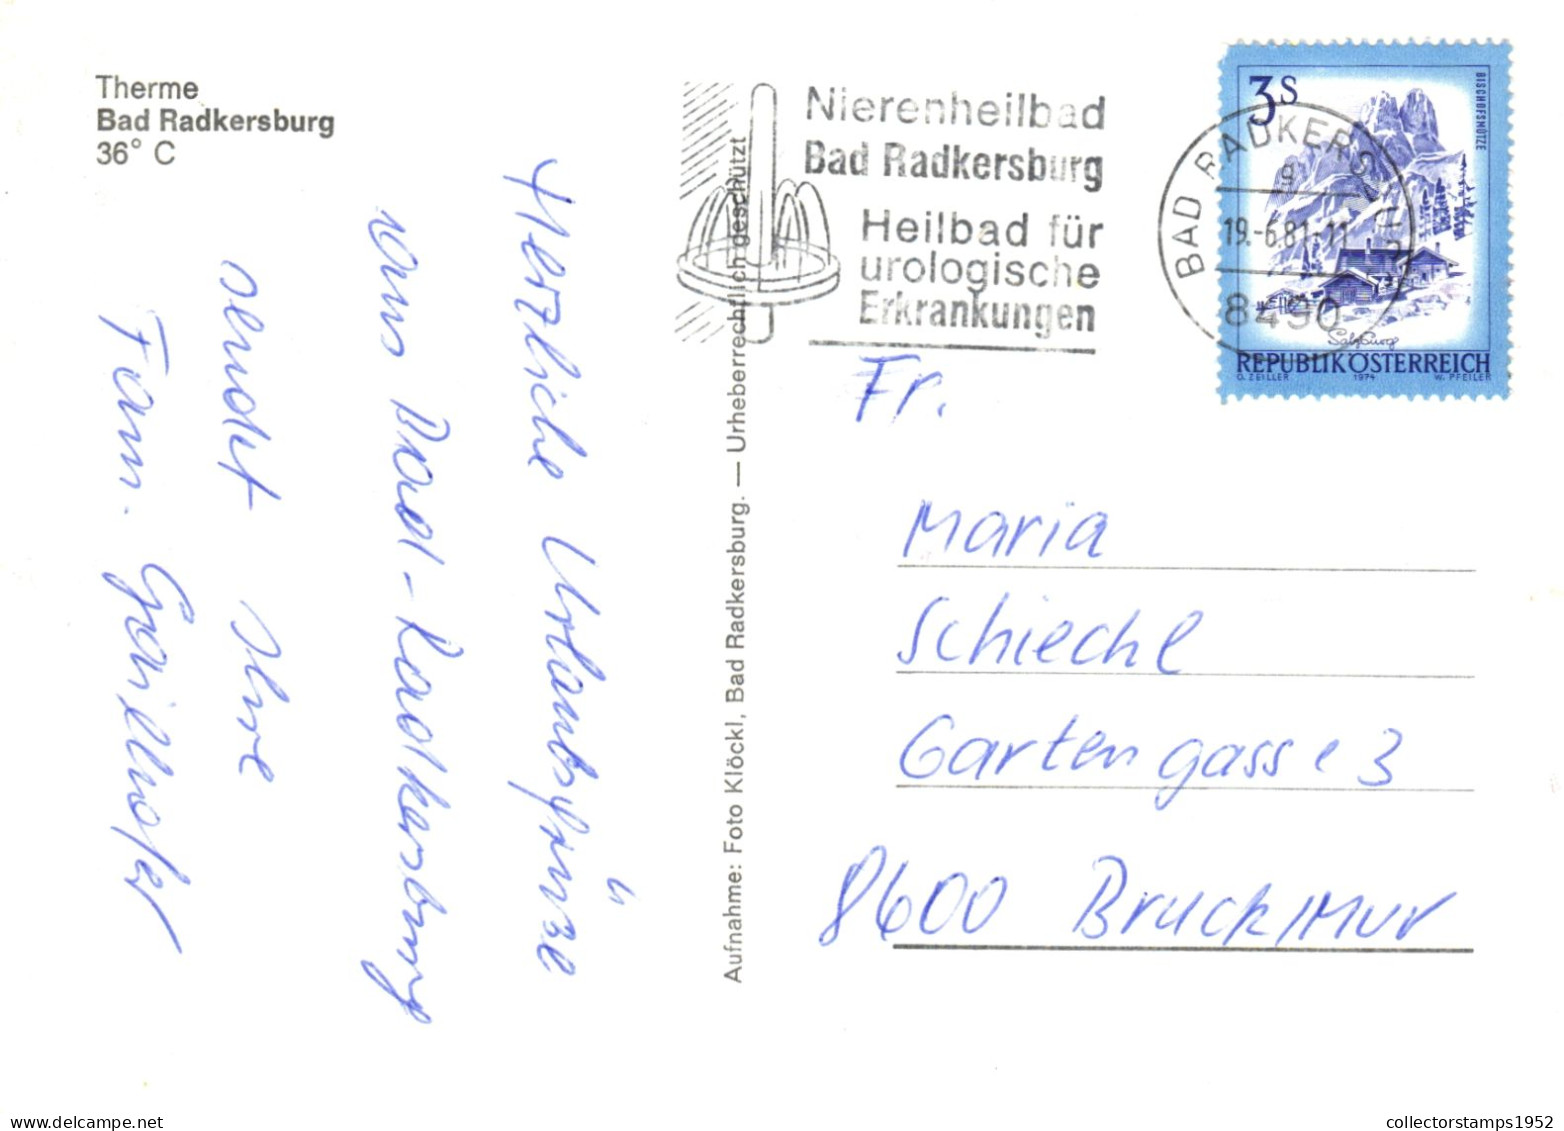 Therme
Bad Radkersburg
36° C
Herzliche Urlaubsgrüße
aus Bad-Radkersburg
sendet Ihre
Fam.
Aufnahme: Foto Klöckl, Bad Radkersburg. — Urheberrechtlich geschützt
Nierenheilbad
Bad Radkersburg
Heilbad für
urologische
Erkrankungen
BAD RADKERSBURG
19.-6.81-11
8490
3S
BISCHOFSMÜTZE
Salzburg
REPUBLIK ÖSTERREICH
O. ZEILLER 1974 W. PFEILER
Fr.
Maria
Schiechl
Gartengasse 3
8600 Bruck/Mur
collectorstamps1952